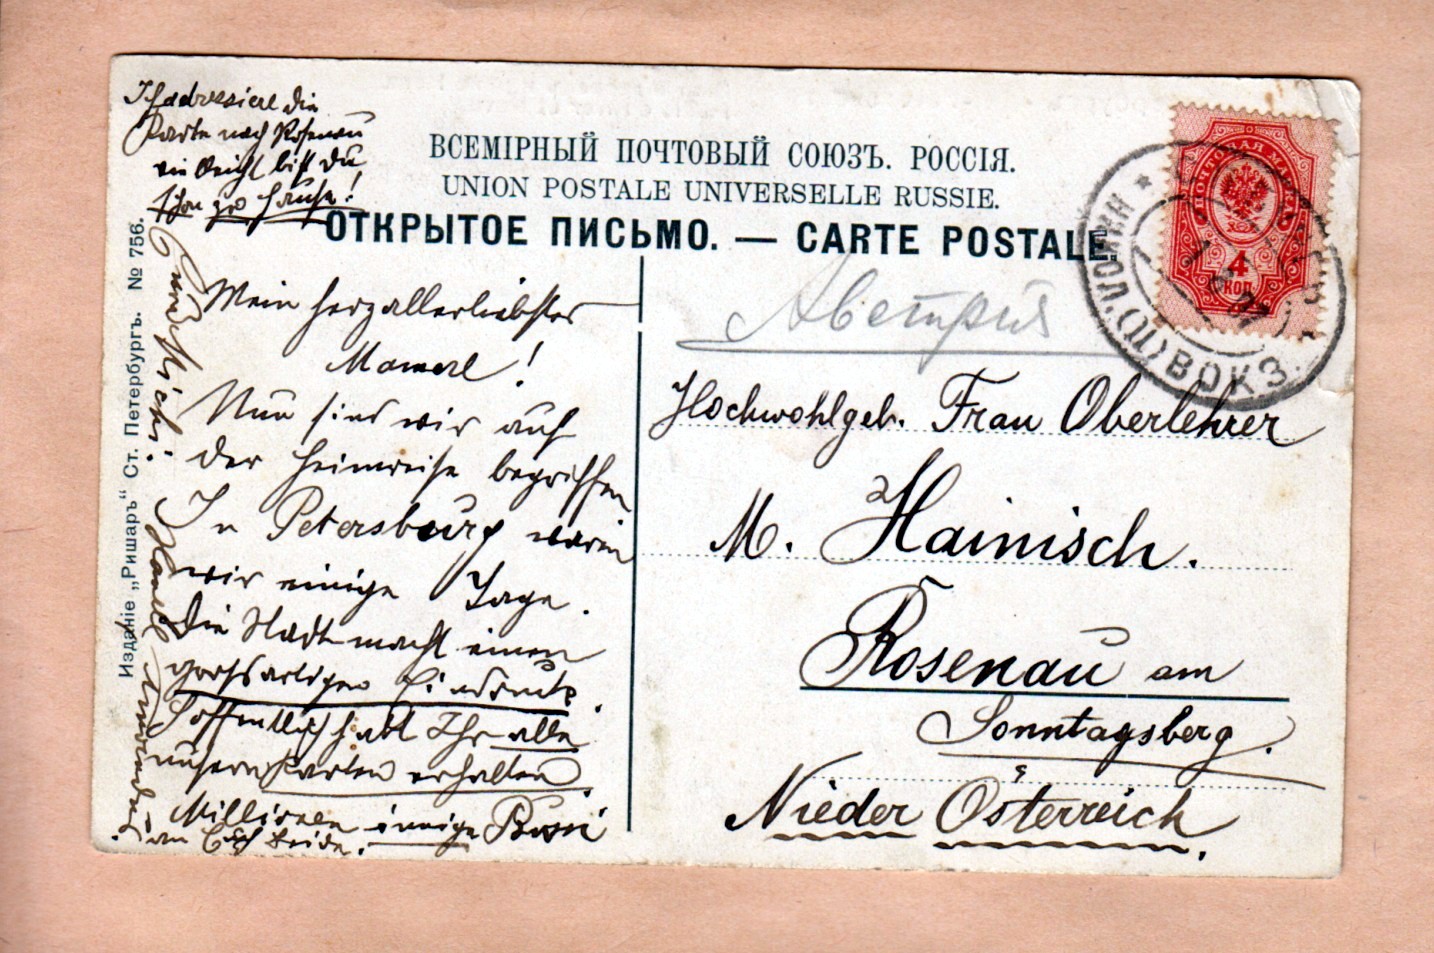 Ich adressiere die
Karte nach Rosenau
vielleicht bist Du
schon zu Hause!
ВСЕМІРНЫЙ ПОЧТОВЫЙ СОЮЗЪ. РОССІЯ.
UNION POSTALE UNIVERSELLE RUSSIE.
ОТКРЫТОЕ ПИСЬМО. — CARTE POSTALE.
Mein herzallerliebstes
Mamerl!
Nun sind wir auf
der Heimreise begriffen
In Petersburg waren
wir einige Tage.
Die Stadt macht einen
großartigen Eindruck.
Hoffentlich habt Ihr alle
unsern Karten erhalten.
Millionen innige Bussi
an Euch beide.
Издание „Ришаръ" Ст. Петербургъ. № 756.
ПОЧТОВАЯ МАРКА
4
КОП.
ВОКЗ.
Австрия
Hochwohlgeb. Frau Oberlehrer
M. Hainisch.
Rosenau am
Sonntagsberg.
Nieder Österreich.